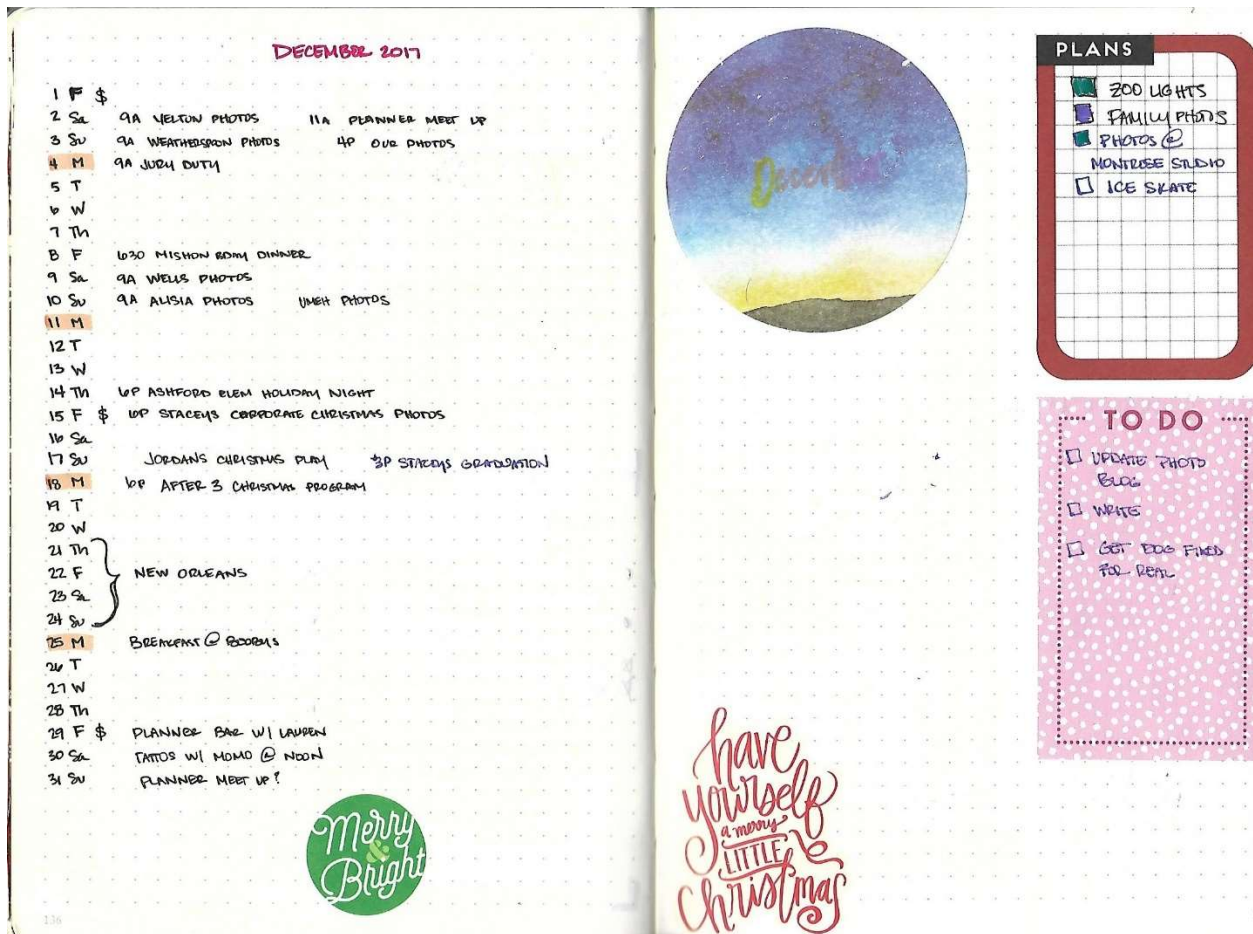 DECEMBER 2017
1 F $
2 Sa 9A YELTON PHOTOS 11A PLANNER MEET UP
3 Su 9A WEATHERSPOON PHOTOS 4P OUR PHOTOS
4 M 9A JURY DUTY
5 T
6 W
7 Th
8 F 630 MISHON BDAY DINNER
9 Sa 9A WELLS PHOTOS
10 Su 9A ALISIA PHOTOS UMEH PHOTOS
11 M
12 T
13 W
14 Th 6P ASHFORD ELEM HOLIDAY NIGHT
15 F $ 6P STACEYS CORPORATE CHRISTMAS PHOTOS
16 Sa
17 Su JORDANS CHRISTMAS PLAY 3P STACEYS GRADUATION
18 M 6P AFTER 3 CHRISTMAS PROGRAM
19 T
20 W
21 Th
22 F NEW ORLEANS
23 Sa
24 Su
25 M BREAKFAST @ BOOBYS
26 T
27 W
28 Th
29 F $ PLANNER BAR W/ LAUREN
30 Sa TATTOS W/ MOMO @ NOON
31 Su PLANNER MEET UP?
Merry
&
Bright
136
December
PLANS
ZOO LIGHTS
FAMILY PHOTOS
PHOTOS @
MONTROSE STUDIO
ICE SKATE
TO DO
UPDATE PHOTO
BLOG
WRITE
GET DOG FIXED
FOR REAL
have
yourself
a merry
LITTLE
Christmas